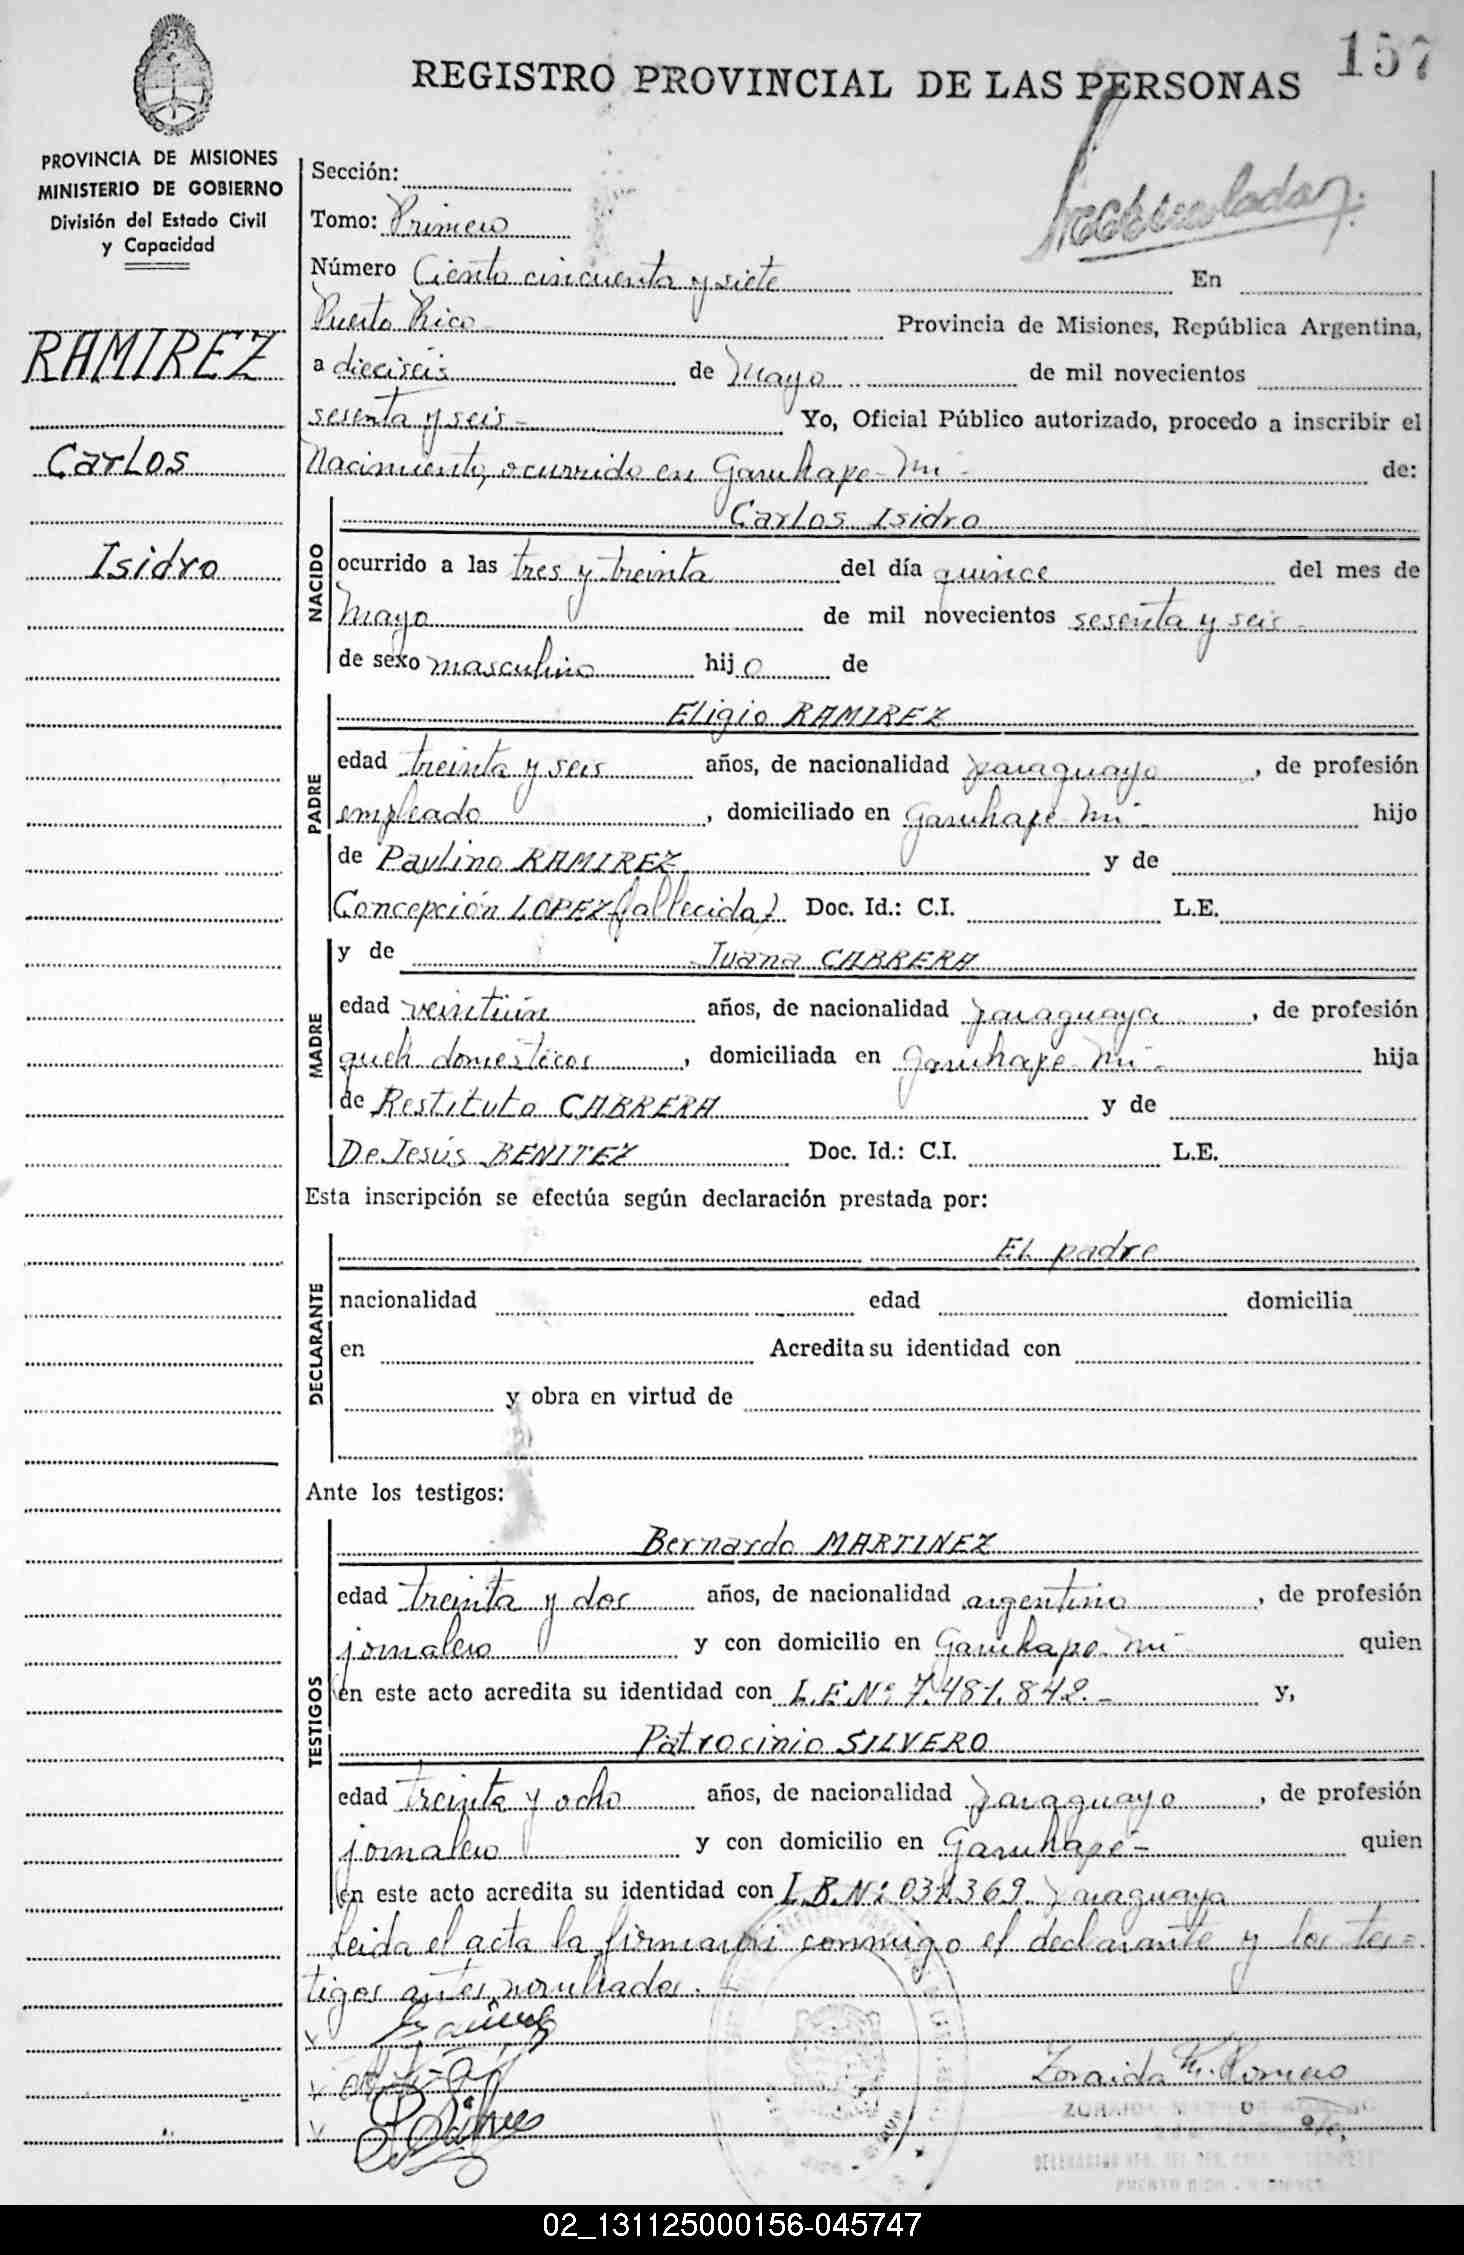 157
REGISTRO PROVINCIAL DE LAS PERSONAS
PROVINCIA DE MISIONES
MINISTERIO DE GOBIERNO
División del Estado Civil
y Capacidad
RAMIREZ
Carlos
Isidro
Sección:
Tomo: Primero
Número Ciento cincuenta y siete En
Puerto Rico - Provincia de Misiones, República Argentina,
a dieciseis de Mayo de mil novecientos
sesenta y seis - Yo, Oficial Público autorizado, procedo a inscribir el
Nacimiento, ocurrido en Garuhape-Mi - de:
NACIDO
Carlos Isidro
ocurrido a las tres y treinta del día quince del mes de
Mayo de mil novecientos sesenta y seis -
de sexo masculino hijo de
PADRE
Eligio RAMIREZ
edad treinta y seis años, de nacionalidad paraguayo, de profesión
empleado, domiciliado en Garuhape-Mi - hijo
de Paulino RAMIREZ y de
Concepción LOPEZ (fallecida) Doc. Id.: C.I. L.E.
MADRE
y de Juana CABRERA
edad veintiún años, de nacionalidad paraguaya, de profesión
queh. domésticos, domiciliada en Garuhape-Mi - hija
de Restituto CABRERA y de
De Jesús BENITEZ Doc. Id.: C.I. L.E.
Esta inscripción se efectúa según declaración prestada por:
DECLARANTE
El padre
nacionalidad edad domicilia
en Acredita su identidad con
y obra en virtud de
Ante los testigos:
TESTIGOS
Bernardo MARTINEZ
edad treinta y dos años, de nacionalidad argentino, de profesión
jornalero y con domicilio en Garuhape-Mi - quien
en este acto acredita su identidad con L.E. Nº 7.481.842.- y,
Patrocinio SILVERO
edad treinta y ocho años, de nacionalidad paraguayo, de profesión
jornalero y con domicilio en Garuhape - quien
en este acto acredita su identidad con paraguaya
Leida el acta la firman conmigo el declarante y los tes=
tigos antes nombrados.-
Zoraida Romero
PUERTO RICO - MISIONES
02_131125000156-045747